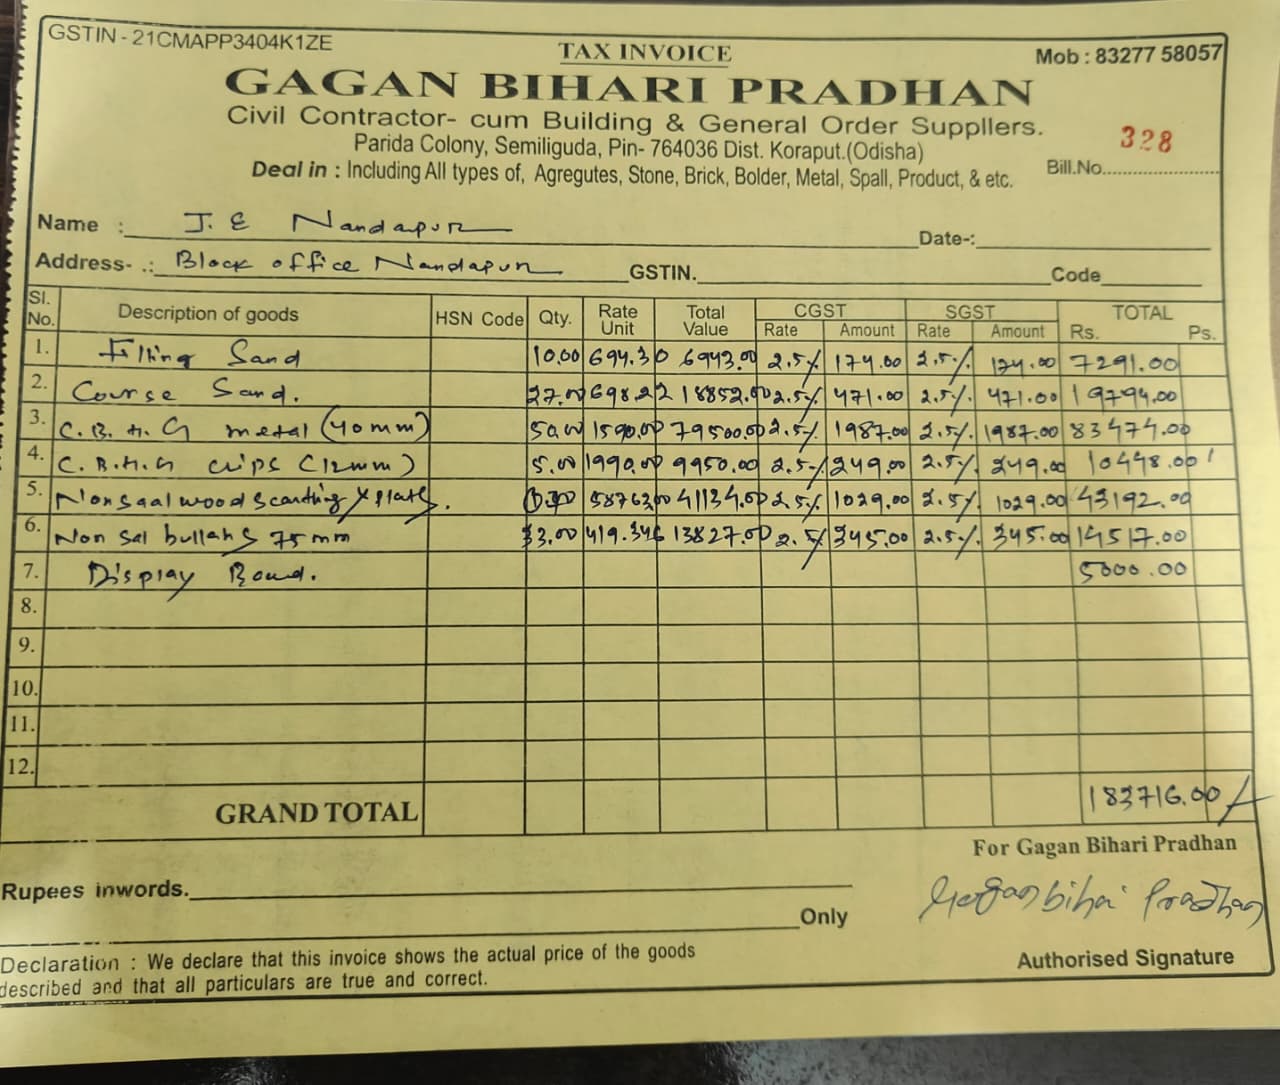 GSTIN - 21CMAPP3404K1ZE
TAX INVOICE
Mob : 83277 58057
GAGAN BIHARI PRADHAN
Civil Contractor- cum Building & General Order Suppllers.
Parida Colony, Semiliguda, Pin- 764036 Dist. Koraput.(Odisha)
Deal in : Including All types of, Agregutes, Stone, Brick, Bolder, Metal, Spall, Product, & etc.
328
Bill.No.
Name : J. E Nandapur
Date-:
Address- .: Block office Nandapur GSTIN. Code
Sl. No. Description of goods HSN Code Qty. Rate Unit Total Value CGST Rate Amount SGST Rate Amount TOTAL Rs. Ps.
1. Filling Sand 10.00 694.30 6943.00 2.5% 174.00 2.5% 174.00 7291.00
2. Course Sand. 27.00 698.22 18852.00 2.5% 471.00 2.5% 471.00 19794.00
3. C.B.H.G metal (40mm) 50.00 1590.00 79500.00 2.5% 1987.00 2.5% 1987.00 83474.00
4. C.B.H.G chips (12mm) 5.00 1990.00 9950.00 2.5% 249.00 2.5% 249.00 10448.00
5. Non saal wood scantling 58763.00 41134.00 2.5% 1029.00 2.5% 1029.00 43192.00
6. Non sal bullahs 75mm 33.00 419.346 13827.00 2.5% 345.00 2.5% 345.00 14517.00
7. Display Boud. 5000.00
8.
9.
10.
11.
12.
GRAND TOTAL 183716.00
For Gagan Bihari Pradhan
Rupees inwords.
Gaganbihai Pradhan
Only
Authorised Signature
Declaration : We declare that this invoice shows the actual price of the goods
described and that all particulars are true and correct.